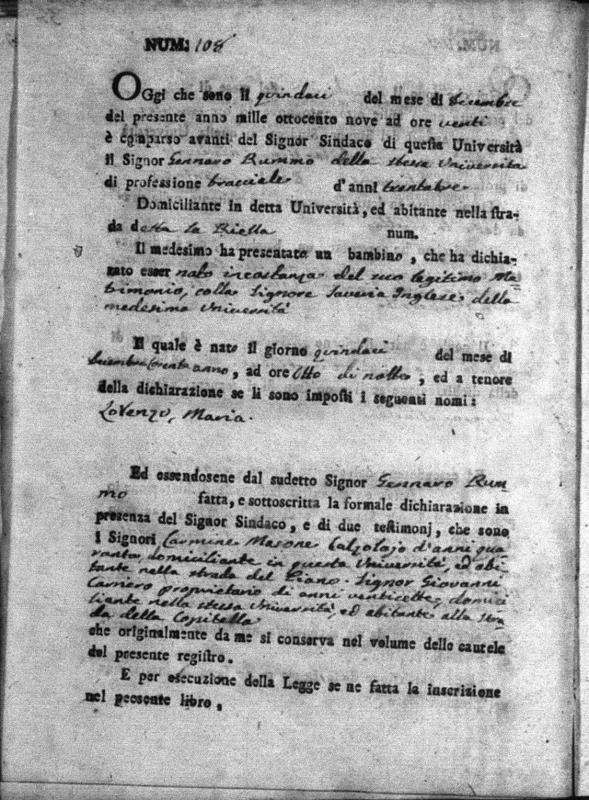 NUM: 108
OGgi che sono il quindeci del mese di Decembre
del presente anno mille ottocento nove ad ore venti
è comparso avanti del Signor Sindaco di questa Università
il Signor Gennaro Rummo della stessa Università
di professione bracciale d'anni trentatre
Domiciliante in detta Università, ed abitante nella stra-
da detta la Biella num.
Il medesimo ha presentato un bambino, che ha dichia-
rato esser nato incostanza del suo legitimo Ma
trimonio, colla Signore Saveria Inglese della
medesima Università
Il quale è nato il giorno quindeci del mese di
Decembre corente anno, ad ore Otto di notte, ed a tenore
della dichiarazione se li sono imposti i seguenti nomi:
Lorenzo, Maria.
Ed essendosene dal sudetto Signor Gennaro Rum-
mo fatta, e sottoscritta la formale dichiarazione in
presenza del Signor Sindaco, e di due testimonj, che sono
i Signori Carmine Masone Calzolajo d'anni qua
ranta, domiciliante in questa Università, ed abi
tante nella strada del Piano. Signor Giovanni
Carriero proprietario di anni venticette, domici
liante nella stessa Università, ed abitante alla stra
da della Copitella
che originalmente da me si conserva nel volume delle cautele
del presente registro.
E per esecuzione della Legge se ne fatta la inscrizione
nel peosente libro,